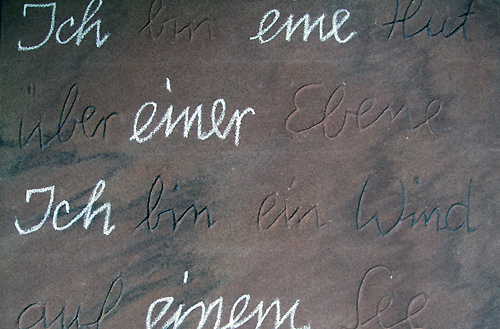 Ich bin eine Flut
über einer Ebene
Ich bin ein Wind
auf einem See